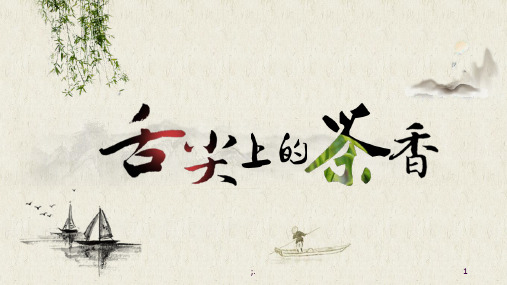 舌尖上的茶香
;.
1